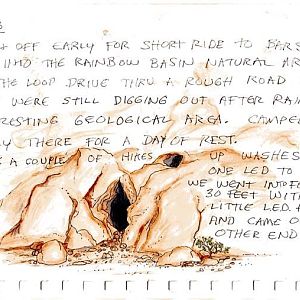 OFF EARLY FOR SHORT RIDE TO BARS
INTO THE RAINBOW BASIN NATURAL AR
THE LOOP DRIVE THRU A ROUGH ROAD
WERE STILL DIGGING OUT AFTER RAIN
ERESTING GEOLOGICAL AREA. CAMPED
Y THERE FOR A DAY OF REST.
A COUPLE OF HIKES UP WASHES
ONE LED TO
WE WENT INTO F
30 FEET WITH
LITTLE L.E.D. H
AND CAME O
OTHER END